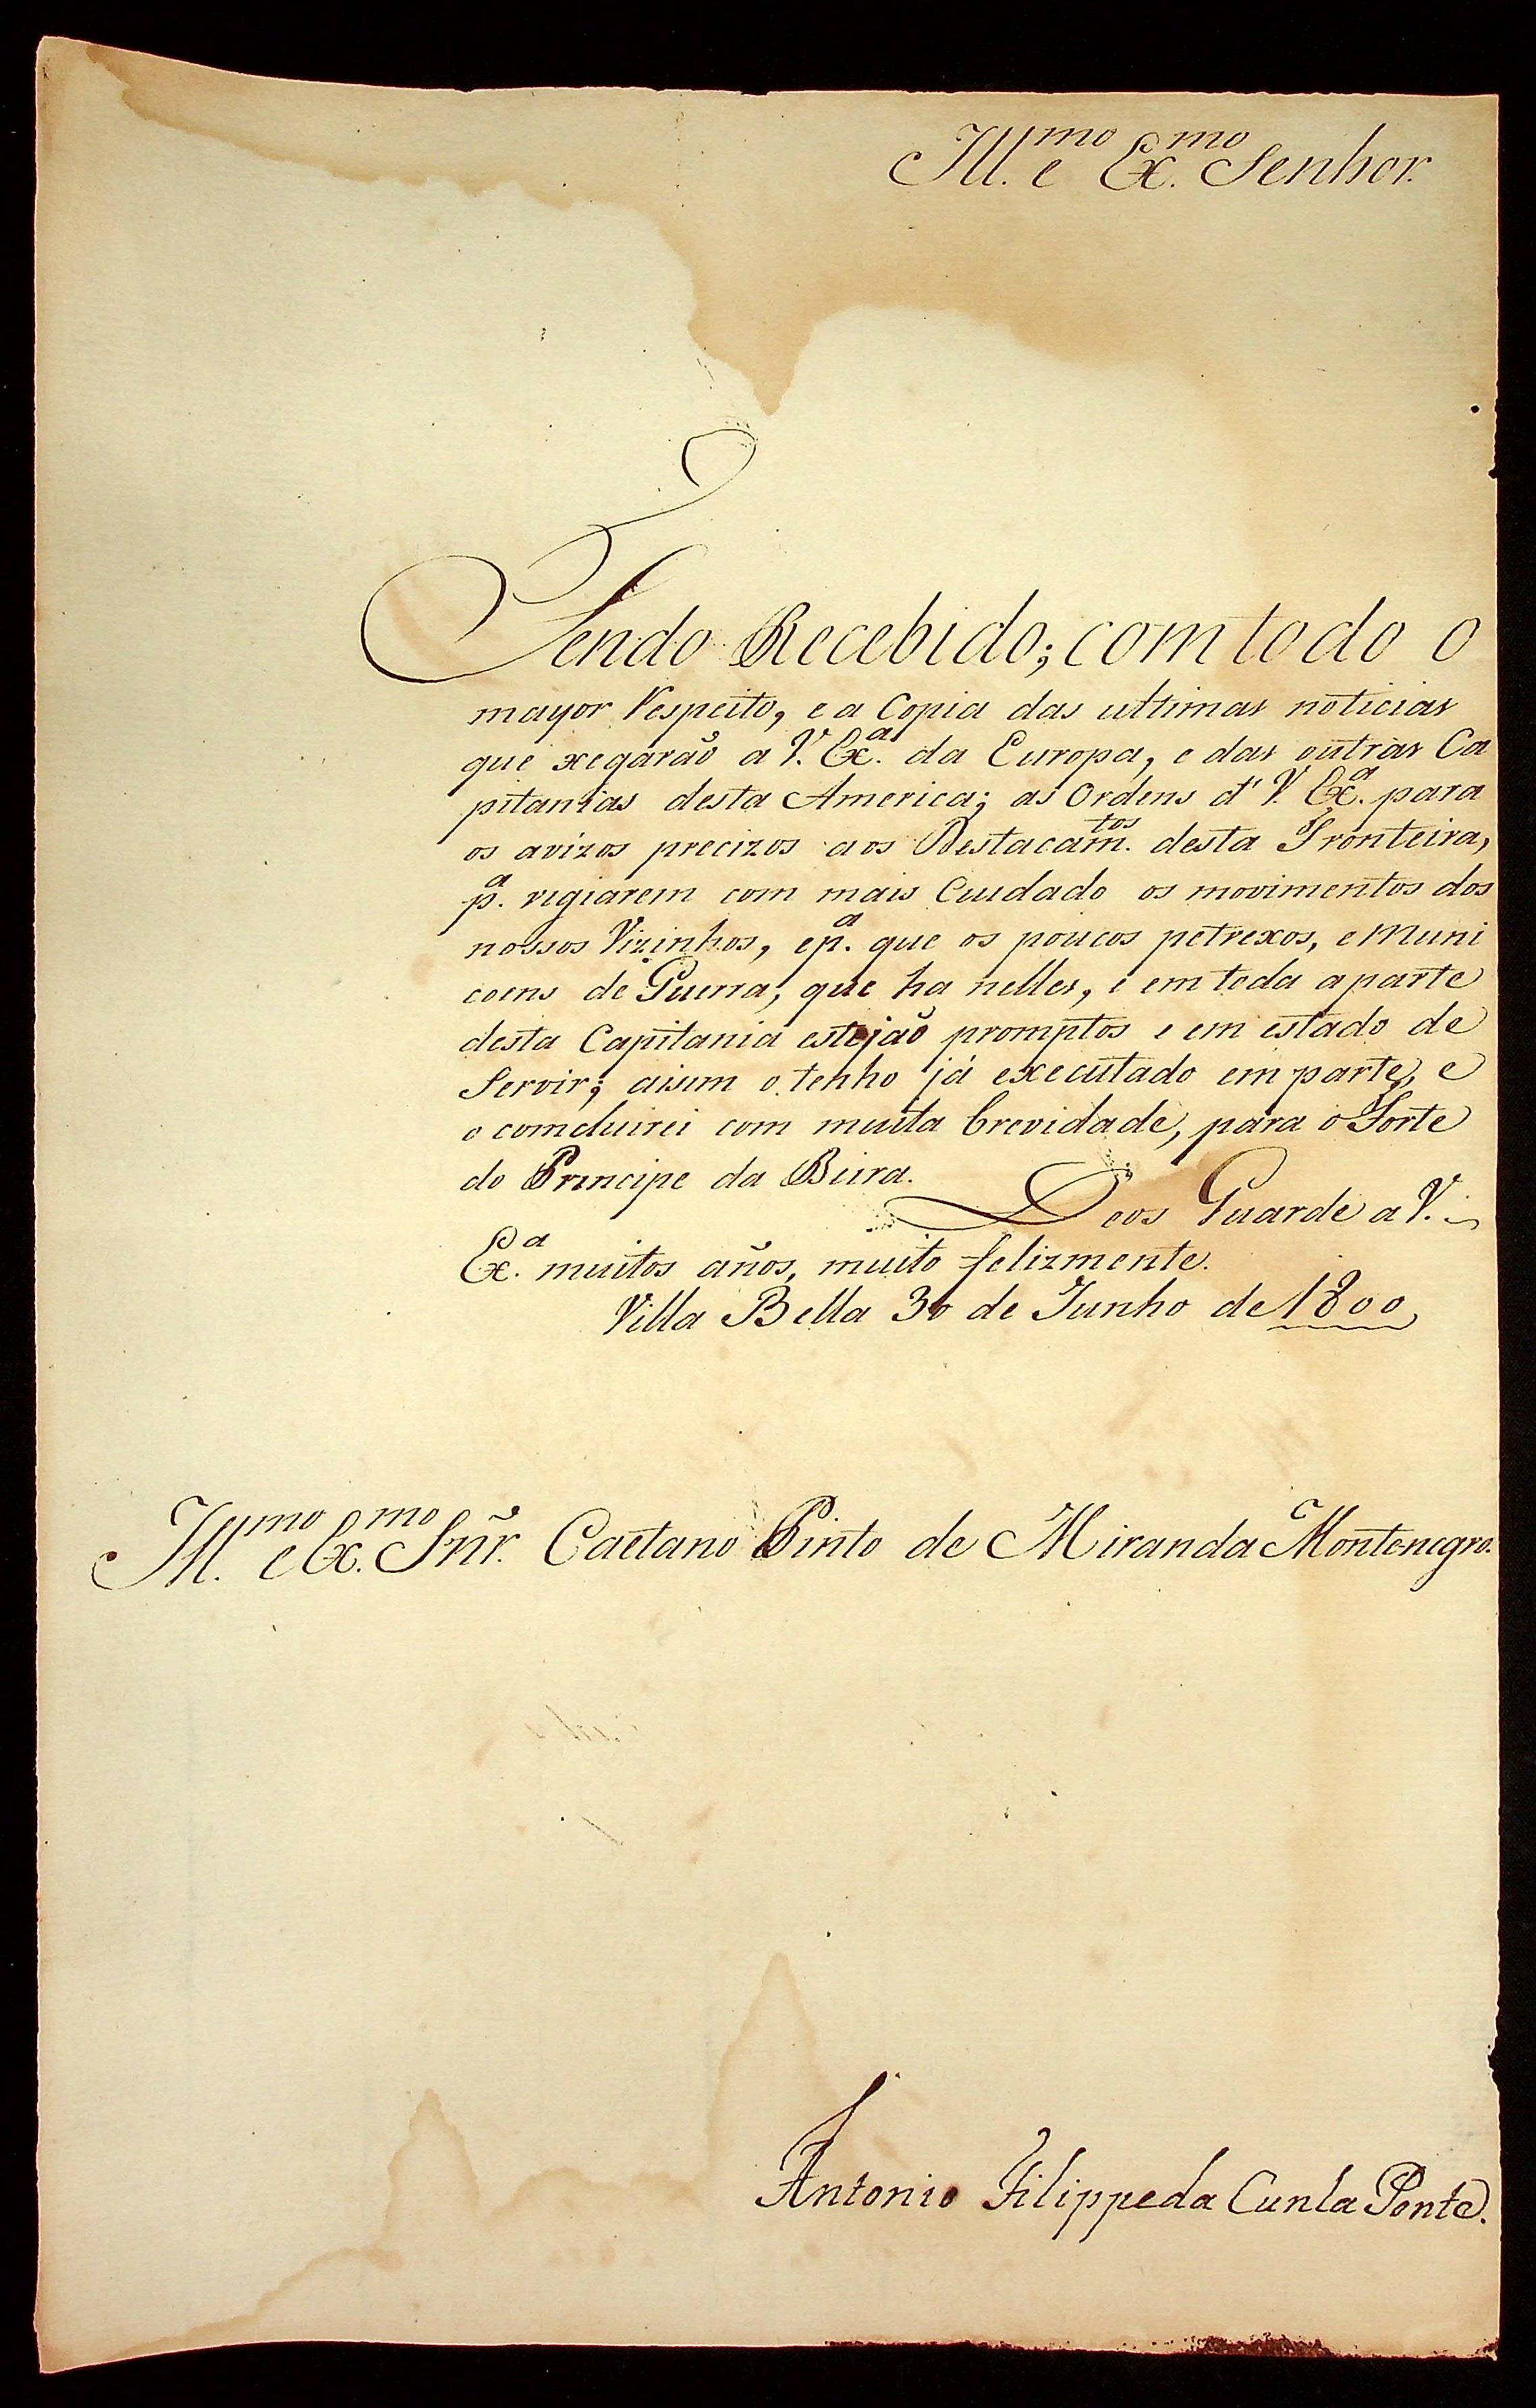 Ill.mo e Ex.mo Senhor.
Sendo Recebido; com todo o
mayor Respeito, e a Copia das ultimas noticias
que xegarão a V. Ex.a da Europa, e das outras Ca
pitanias desta America; as Ordens d' V. Ex.a para
os avizos precizos aos Destacam.tos desta Fronteira,
p.a vigiarem com mais Cuidado os movimentos dos
nossos Vizinhos, e p.a que os poucos petrexos, e Muni
coens de Guerra, que ha nelles, e em toda a parte
desta Capitania estejão promptos e em estado de
Servir; asim o tenho já executado em parte, e
o comcluirei com muita brevidade, para o Forte
do Principe da Beira.
Deos Guarde a V.
Ex.a muitos años, muito felizmente.
Villa Bella 30 de Junho de 1800
Ill.mo e Ex.mo Sñr. Caetano Pinto de Miranda Montenegro.
Antonio Filippe da Cunha Ponte.